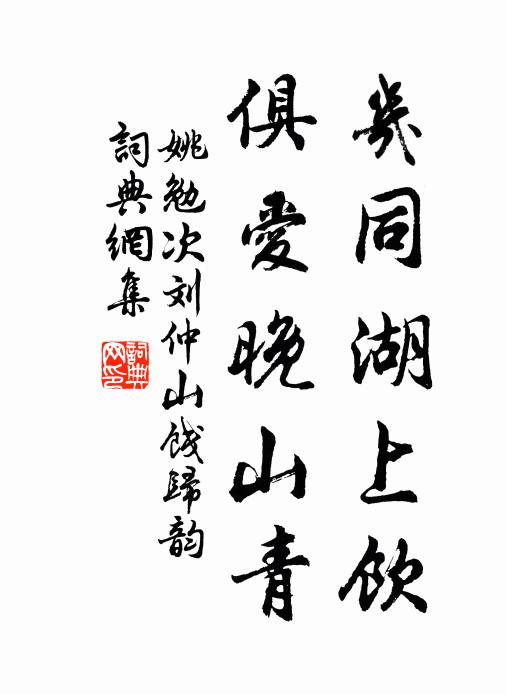 幾同湖上飲
俱愛晚山青
姚勉次刘仲山餞歸韵
詞典網集
詞典网印